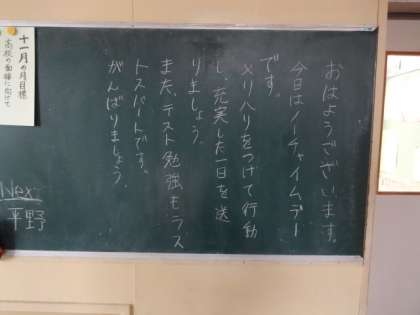 おはようございます。
今日はノーチャイムデー
です。
メリハリをつけて行動
し、充実した一日を送
りましょう。
また、テスト勉強もラス
トスパートです。
がんばりましょう。
十一月の月目標
高校の面接に向けて
Nex
平野